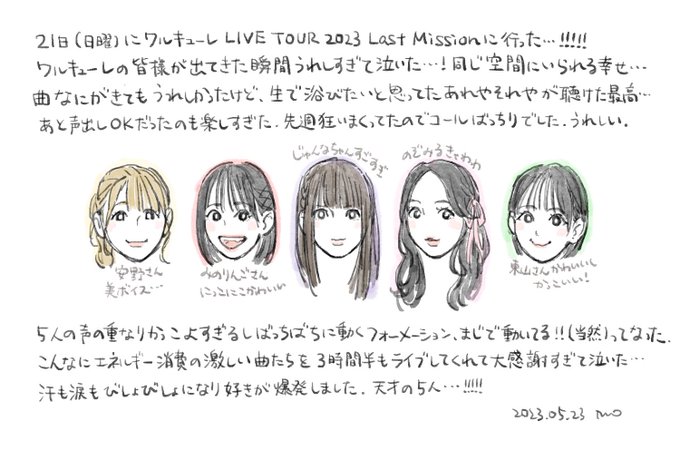 21日(日曜)にワルキューレ LIVE TOUR 2023 Last Missionに行った…!!!!!
ワルキューレの皆様が出てきた瞬間うれしすぎて泣いた…!同じ空間にいられる幸せ…
曲なにがきてもうれしかったけど、生で浴びたいと思ってたあれやそれやが聴けた最高…
あと声出しOKだったのも楽しすぎた.先週狂いまくってたのでコールばっちりでした.うれしい.
じゅんなちゃんすごすぎ
のぞみるきゃわわ
安野さん
美ボイズ…
みのりんごさん
にっこにこかわいい
東山さんかわいいし
かっこいい!
5人の声の重なりかっこよすぎるしばっちばちに動くフォーメーション、まじで動いてる!!(当然)ってなった.
こんなにエネルギー消費の激しい曲たちを3時間半もライブしてくれて大感謝すぎて泣いた…
汗も涙もびしょびしょになり好きが爆発しました.天才の5人…!!!!!
2023.05.23